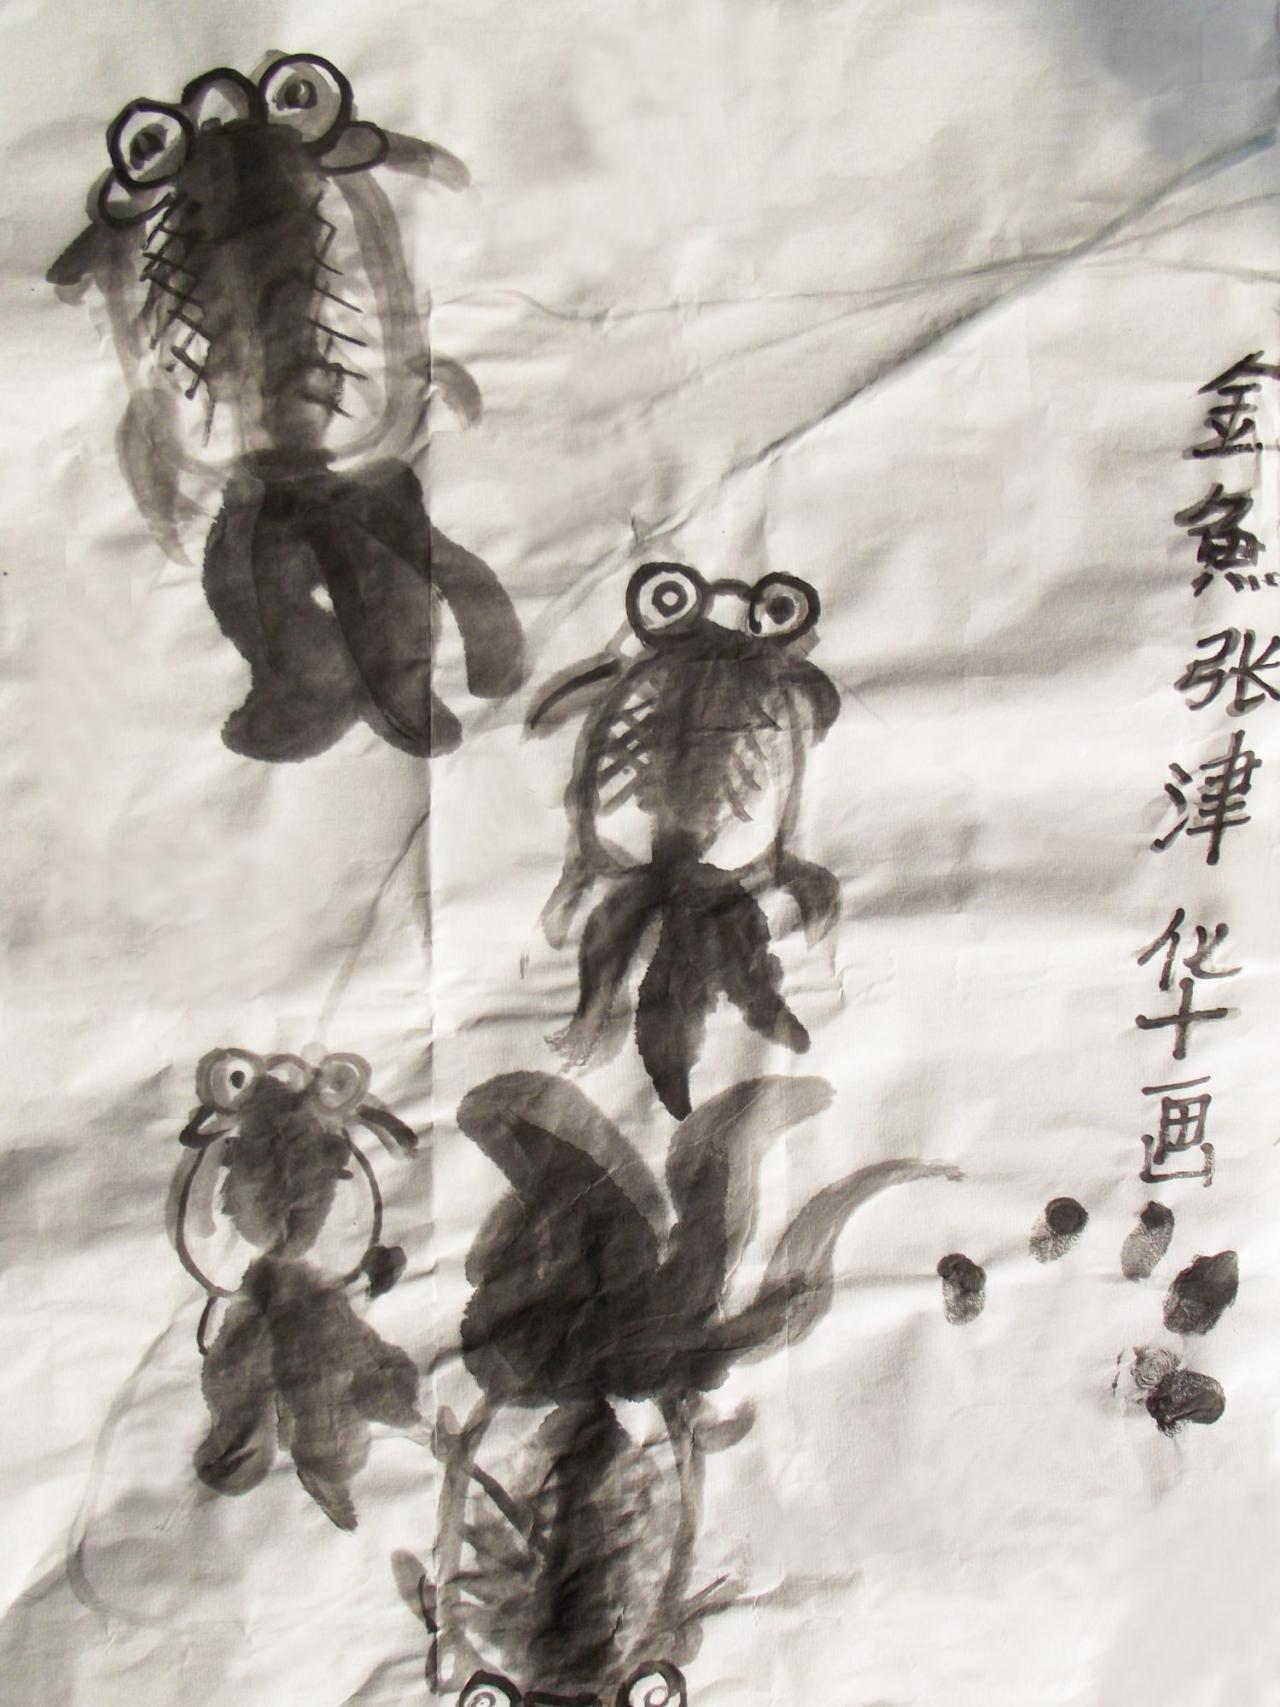 金魚张津华画